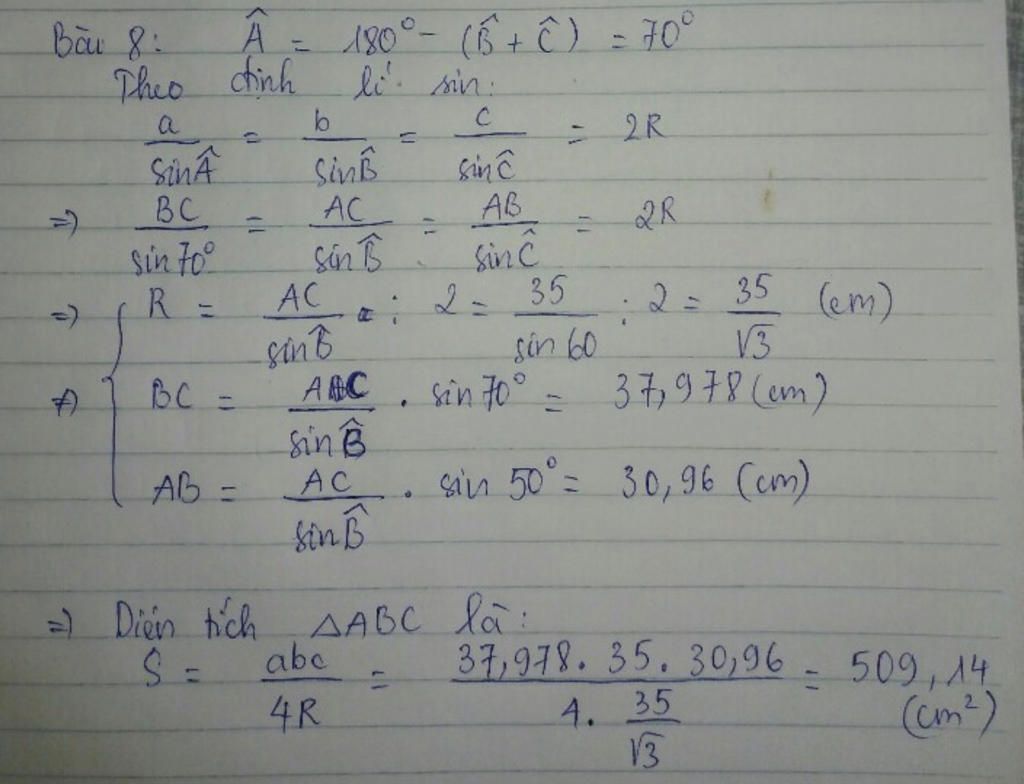 Bài 8: Â = 180° - (B̂ + Ĉ) = 70°
Theo định lí sin:
a/sinÂ = b/sinB̂ = c/sinĈ = 2R
=> BC/sin70° = AC/sinB̂ = AB/sinĈ = 2R
=> { R = AC/sinB̂ : 2 = 35/sin60 : 2 = 35/√3 (cm)
BC = AC/sinB̂ . sin70° = 37,978 (cm)
AB = AC/sinB̂ . sin 50° = 30,96 (cm)
=> Diện tích △ABC là:
S = abc/4R = 37,978. 35. 30,96/4. 35/√3 = 509,14 (cm²)